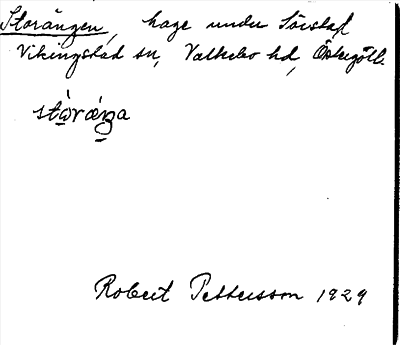 Storängen, hage under Sörstad
Vikingstad sn, Valkebo hd, Östergötl.
stò̱rǽŋ̱a
Robert Pettersson 1929